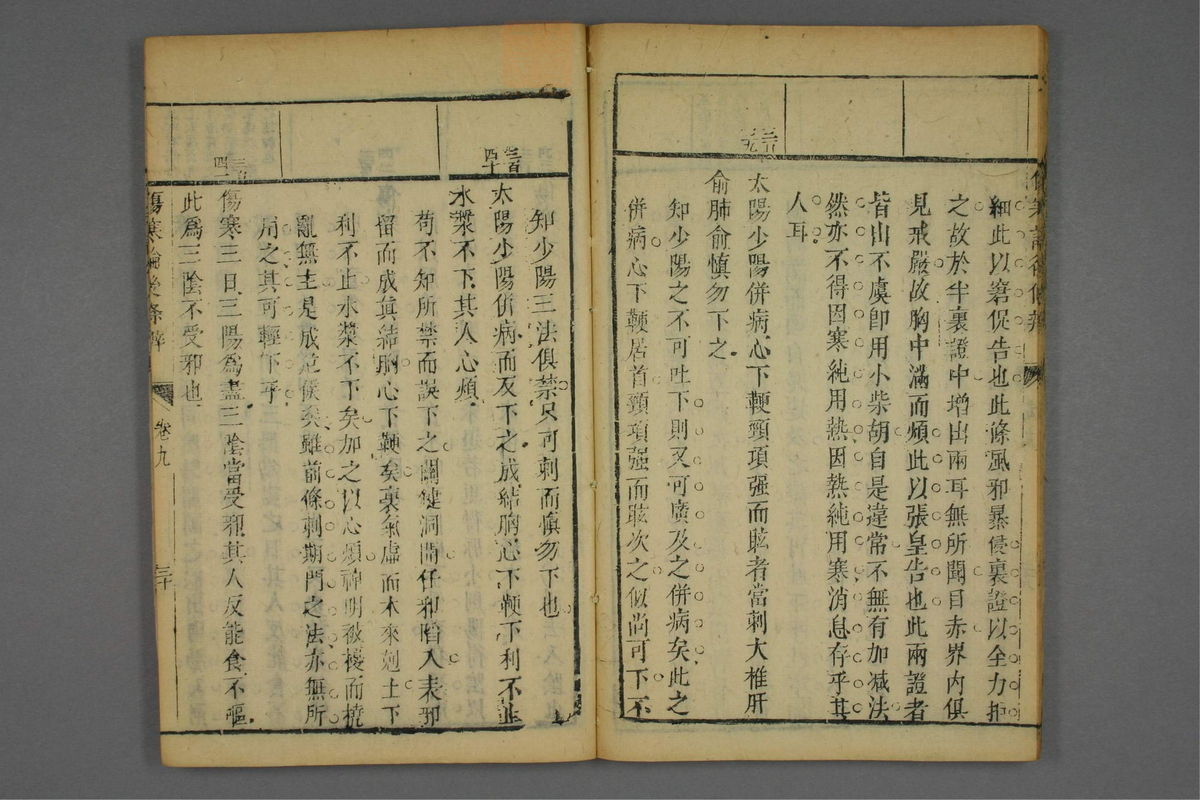 細此以窘促告也此條風邪暴侵裏證以全力拒
之故於半裏證中增出兩耳無所聞目赤界內俱
見戒嚴故胸中滿而煩此以張皇告也此兩證者
皆出不虞卽用小柴胡自是違常不無有加減法
然亦不得因寒純用熱因熱純用寒消息存乎其
人耳
太陽少陽併病心下鞕頸項强而眩者當刺大椎肝
俞肺俞慎勿下之
知少陽之不可吐下則又可廣及之併病矣此之
併病心下鞕居首頸項强而眩次之似尚可下不
知少陽三法俱禁只可刺而慎勿下也
三百四十
太陽少陽併病而反下之成結胸心下鞕下利不止
水漿不下其人心煩
苟不知所禁而誤下之關鍵洞開任邪陷入表邪
留而成眞結胸心下鞕矣裏氣虛而木來剋土下
利不止水漿不下矣加之以心煩神明被擾而撓
亂無主是成逆候矣雖前條刺期門之法亦無所
用之其可輕下乎
傷寒三日三陽爲盡三陰當受邪其人反能食不嘔
此爲三陰不受邪也
傷寒論後條辨
卷九
三十